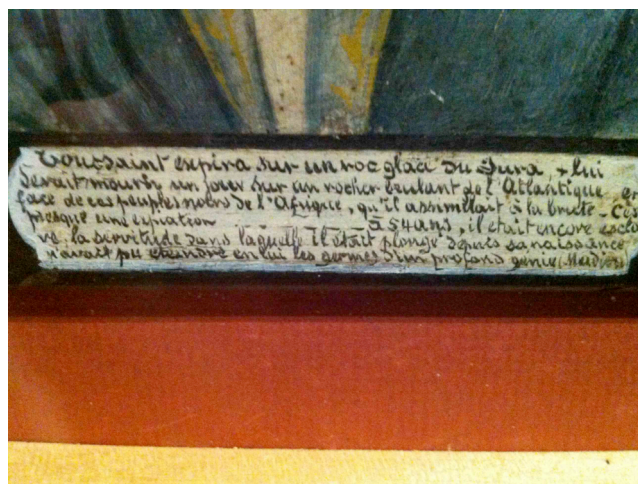 Toussaint expira sur un roc glacé du Jura, + lui
devait mourir un jour sur un rocher brulant de l'Atlantique en
face de ces peuples noirs de l'Afrique, qu'il assimilait à la brute - C'est
presque une équation _ _ _ _ à 54 ans, il était encore escla
ve, la servitude dans laquelle il était plongé depuis sa naissance
n'avait pu éteindre en lui les germes d'un profond génie